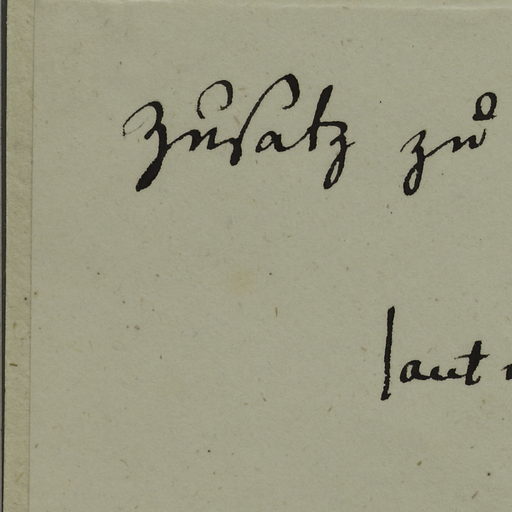 Zusatz zu
laut